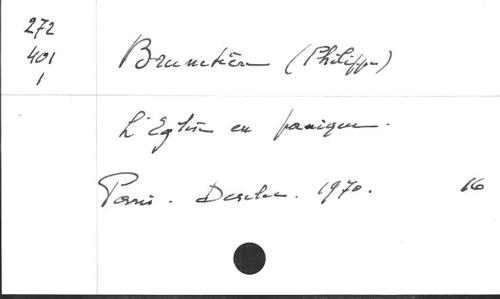 272
401
1
Brunetière (Philippe)
L'Eglise en panique.
Paris. Desclée. 1970. 16